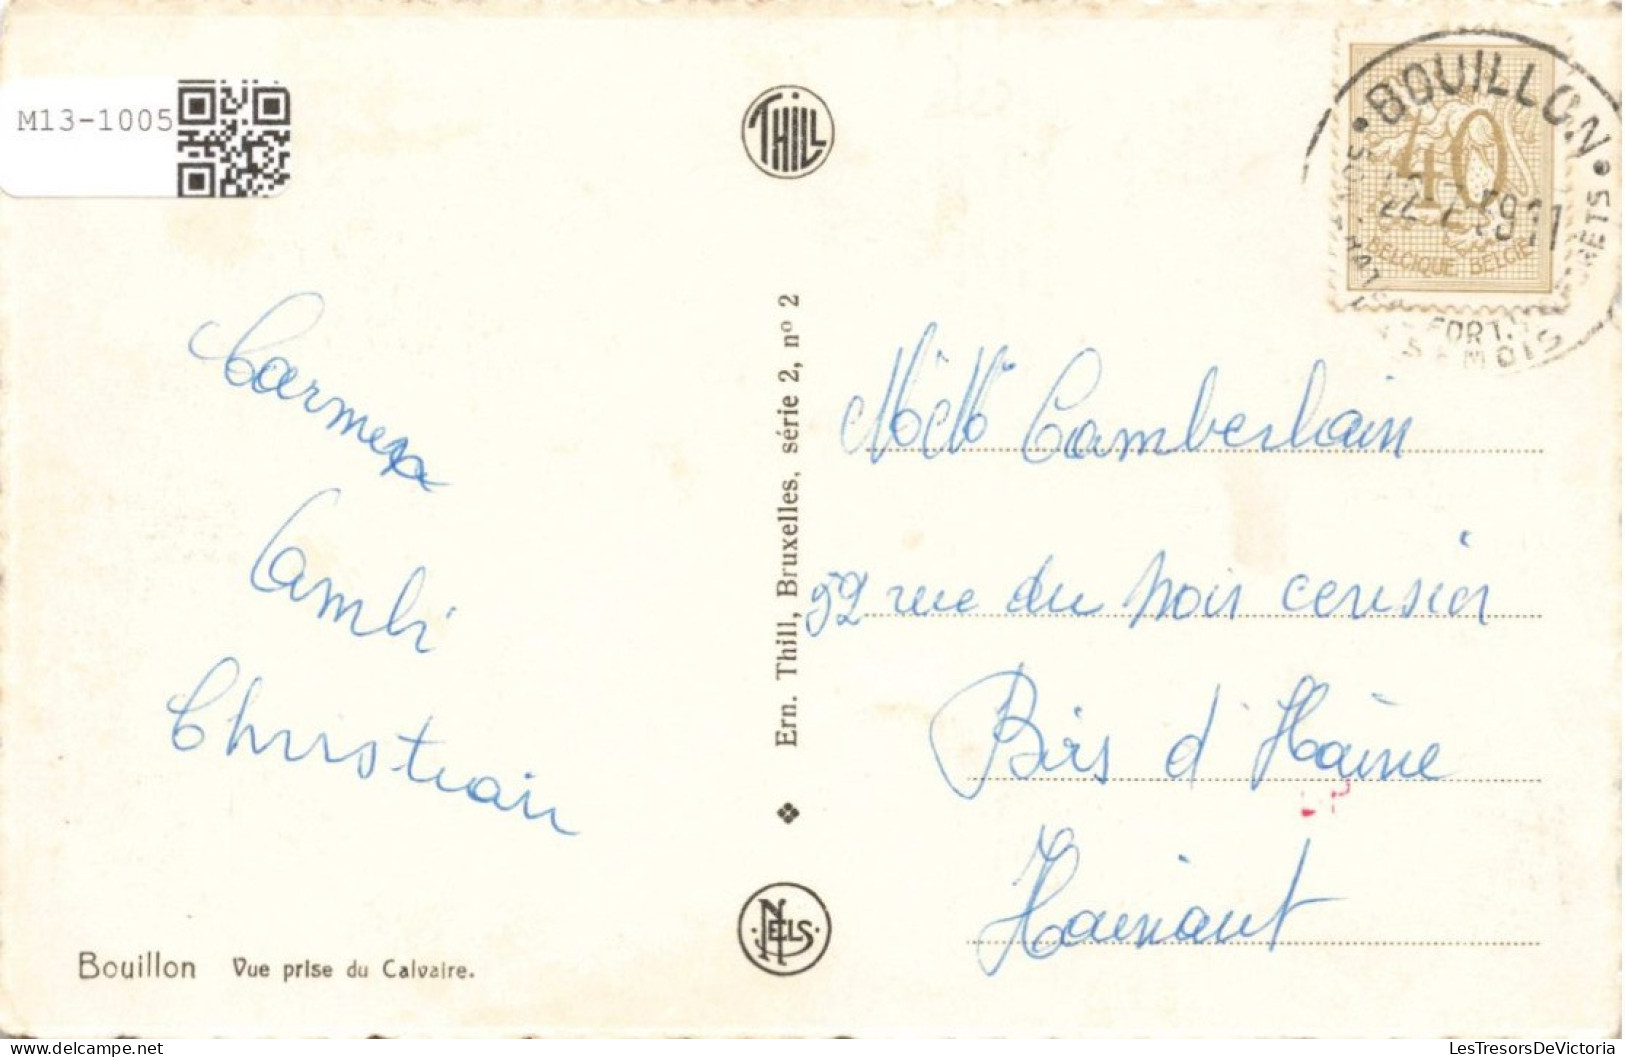 M13-1005
THILL
BOUILLON
40
BELGIQUE BELGIË
Carmen
Cambi
Christian
Ern. Thill, Bruxelles, série 2, nº 2
Camberlain
59 rue du noir cerisier
Bois d'Haine
Hainaut
NELS
Bouillon Vue prise du Calvaire.
LesTresorsDeVictoria